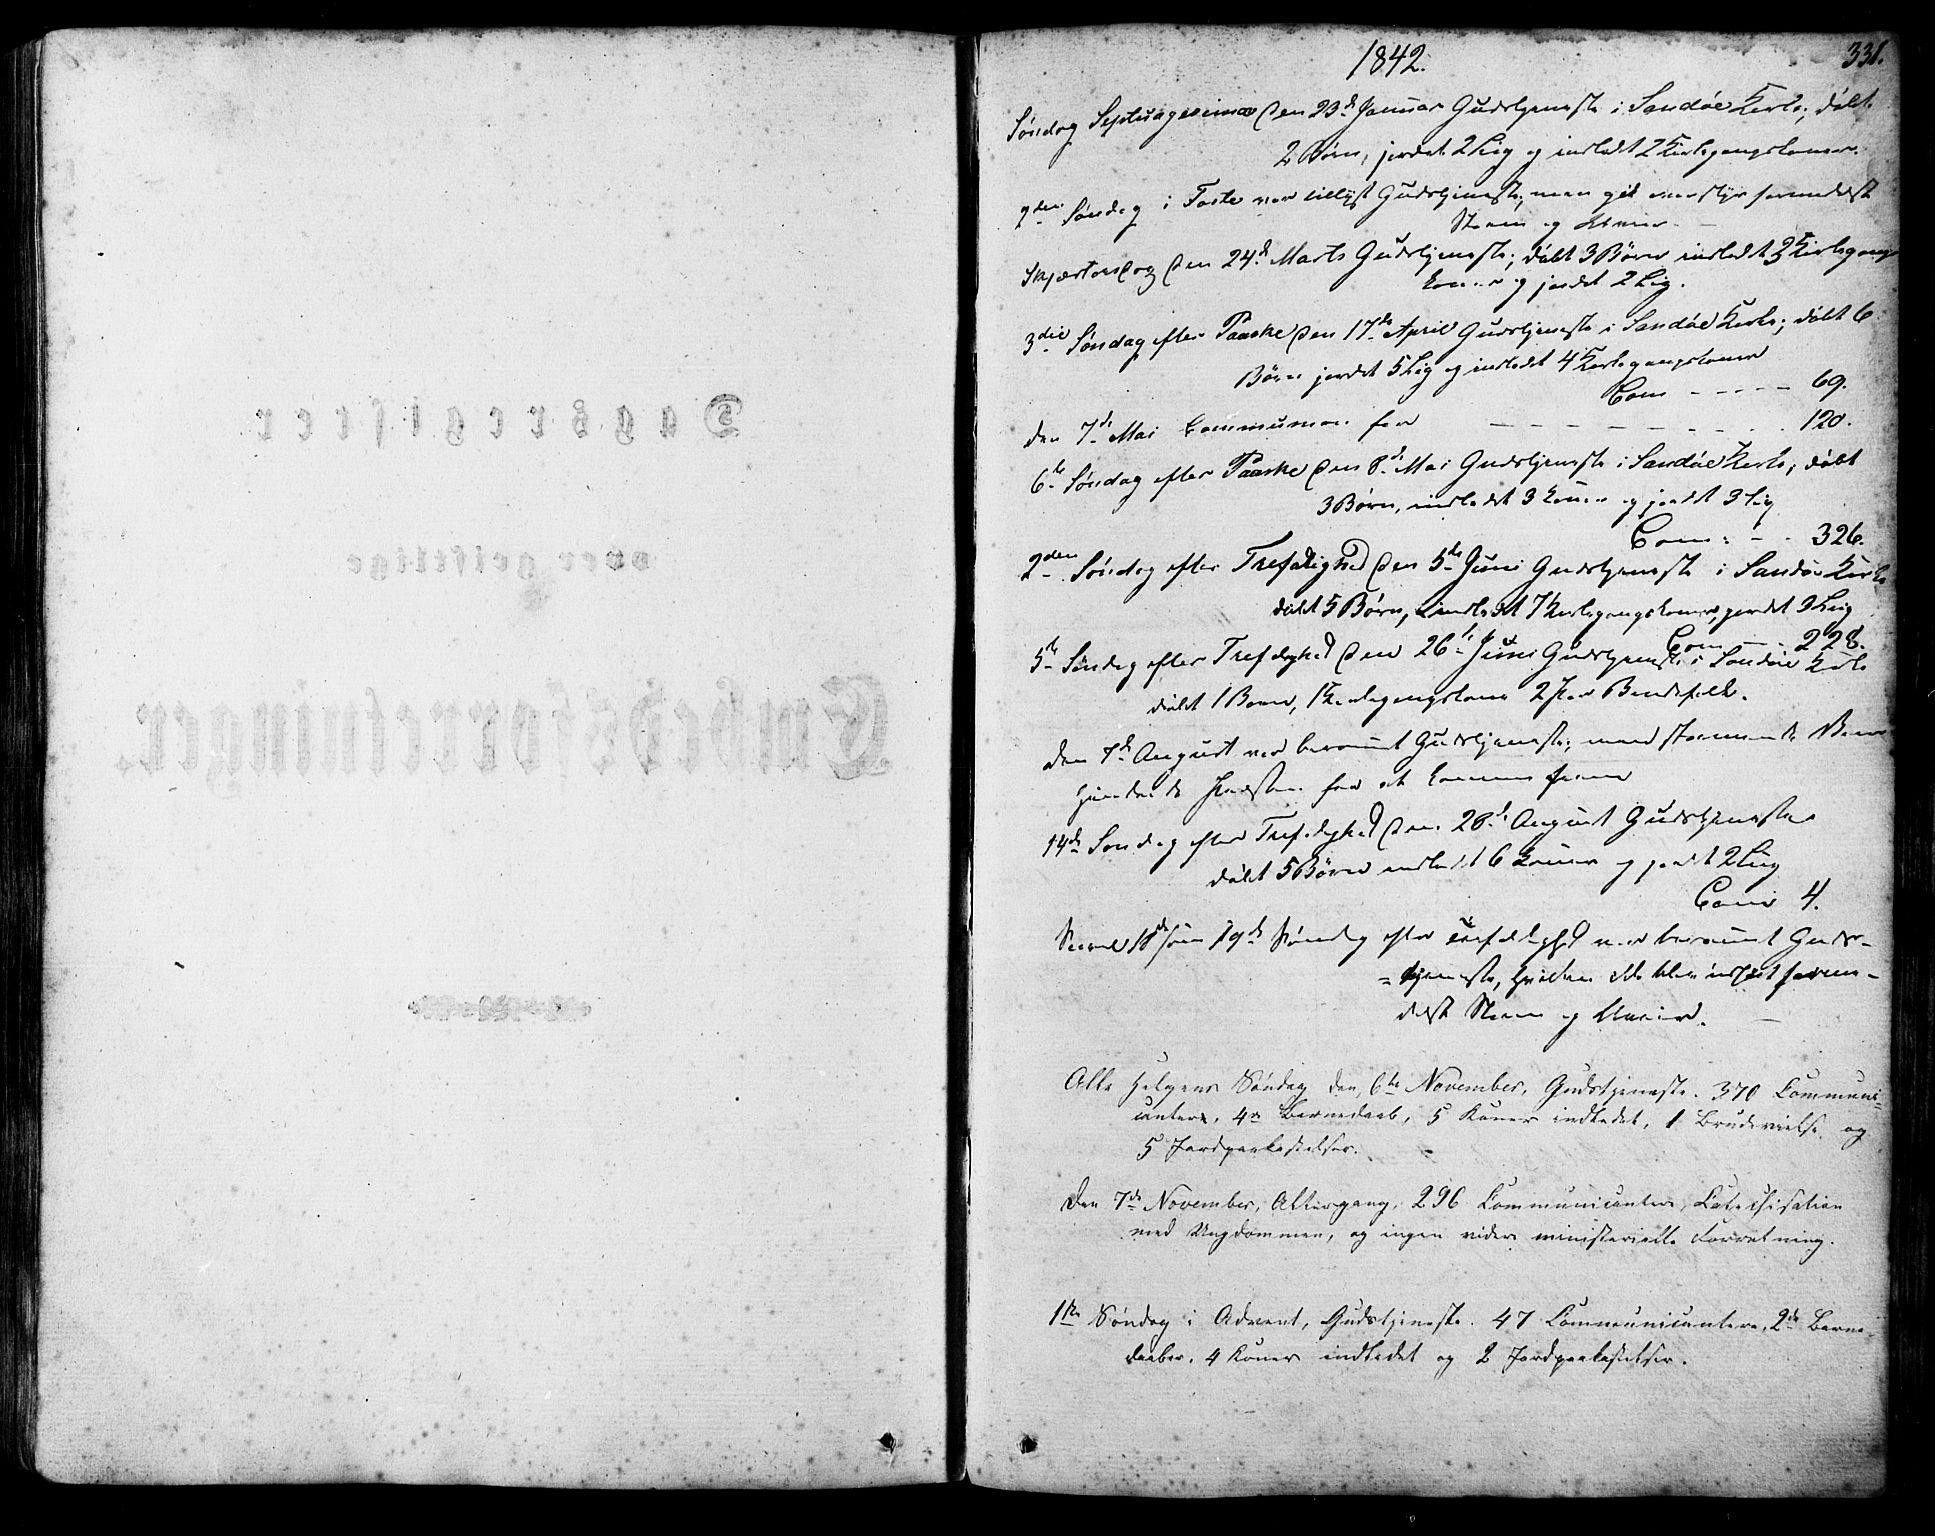 1842.
331.
Søndag Septuagesima den 23d Januar Gudstjeneste i Sandøe Kirke, døbt
2 Børn, jordet 2 Liig og indledt 2 Kirkegangskoner.
2den Søndag i Faste var tillyst Gudstjeneste, men formedelst
Storm og
Skjærtorsdag den 24d Marts Gudstjeneste; døbt 3 Børn indledt 3 Kirkegangs
koner og jordet 2 Lig.
3die Søndag efter Paaske den 17de April Gudstjeneste i Sandøe Kirke; døbt 6
Børn jordet 5 Lig og indledt 4 Kirkegangskoner
Com - - - - - 69.
den 7de Mai Communion for - - - - - - - - 120.
6te Søndag efter Paaske den 8de Mai Gudstjeneste i Sandøe Kirke, døbt
3 Børn, indledt 3 Koner og jordet 3 Lig
Com: - - 326.
2den Søndag efter Trefoldighed den 5te Juni Gudstjeneste i Sandøe Kirke
døbt 5 Børn, indledt 7 Kirkegangskoner, jordet 3 Liig
Com - - 228.
5te Søndag efter Trefoldighed den 26de Juni Gudstjeneste i Sandøe Kirke
døbt 1 Barn, 1 Kirkegangskone 2 Par Brudefolk.
den 7de August var berammet Gudstjeneste; men stormende Veir
hindrede Præsten for at komme frem
14de Søndag efter Trefoldighed den 28de August Gudstjeneste
døbt 5 Børn indledt 6 Koner og jordet 2 Liig
Com 4.
Saavel 18de som 19de Søndag efter Trefoldighed var berammet Guds-
=tjeneste, hvilken ikke blev formedelst
Storm og
Alle Helgens Søndag den 6te November, Gudstjeneste. 370 Communi-
canter, 4re Barnedaab, 5 Koner indledet, 1 Brudevielse og
5 Jordpaakastelser.
Den 7de November, Altergang. 296 Communicantere, Catechisation
med Ungdommen, og ingen videre ministerielle Forretning.
1ste Søndag i Advent, Gudstjeneste. 47 Communicantere, 2de Barne-
daaber, 4 Koner indledet og 2 Jordpaakastelser.